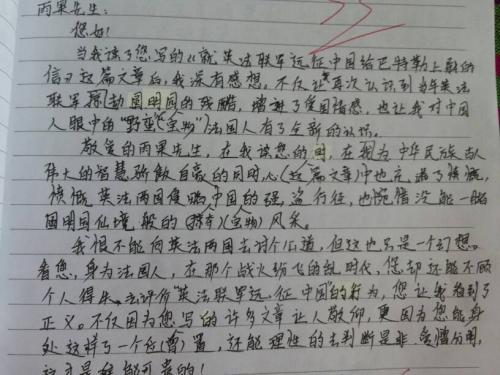 雨果先生：
您好！
当我读了您写的《就英法联军远征中国给巴特勒上尉的
信》这篇文章后，我深有感想。不仅让我再次认识到当年英法
联军掠劫圆明园的残酷，增进了爱国情感，也让我对中国
人眼中的"野蛮(宝物)"法国人有了全新的认识。
敬爱的雨果先生，在我读您的时，在我为中华民族古人
伟大的智慧骄傲自豪的同时心(这篇文章)中也充满了愤慨，
愤慨英法两国侵略中国的强盗行径，也惋惜没能一睹
圆明园仙境般的(宝物)风采。
我恨不能向英法两国去讨个公道，但这也只是一个幻想。
看您，身为法国人，在那个战火纷飞的乱时代，您却还能不顾
个人得失，去评价"英法联军远征中国"的行为，您让我看到了
正义。不仅因为您写的许多文章让人敬仰，更因为您能身
处这样了一个位(曾)置，还能理性的去判断是非，爱憎分明，